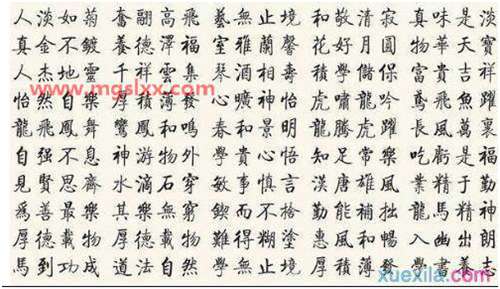 人淡如菊 奮翮高飛 藝無止境 和敬清寂 真味是淡
真金不鍍 養德澤福 室雅蘭馨 花好月圓 物華天寶
人杰地靈 千祥雲集 琴酒相壽 學儲 富貴吉祥
怡然自樂 厚積薄發 心曠神怡 虎嘯龍吟 鳶飛魚躍
龍飛鳳舞 鸞鳳和鳴 春和景明 龍騰虎躍 長風萬裏
自强不息 神游物外 學貴心悟 知足常樂 吃虧是福
見賢思齊 水滴石穿 敏事慎言 漢唐雄風 業精于勤
爲善最樂 其樂無窮 鍥而不捨 勤能補拙 龍馬精神
厚德載物 厚德載物 難得糊塗 惠風和暢 入幽出朗
馬到功成 道法自然 學無止境 厚積薄發 學書養志
www.mgslxx.com
xuexila.com